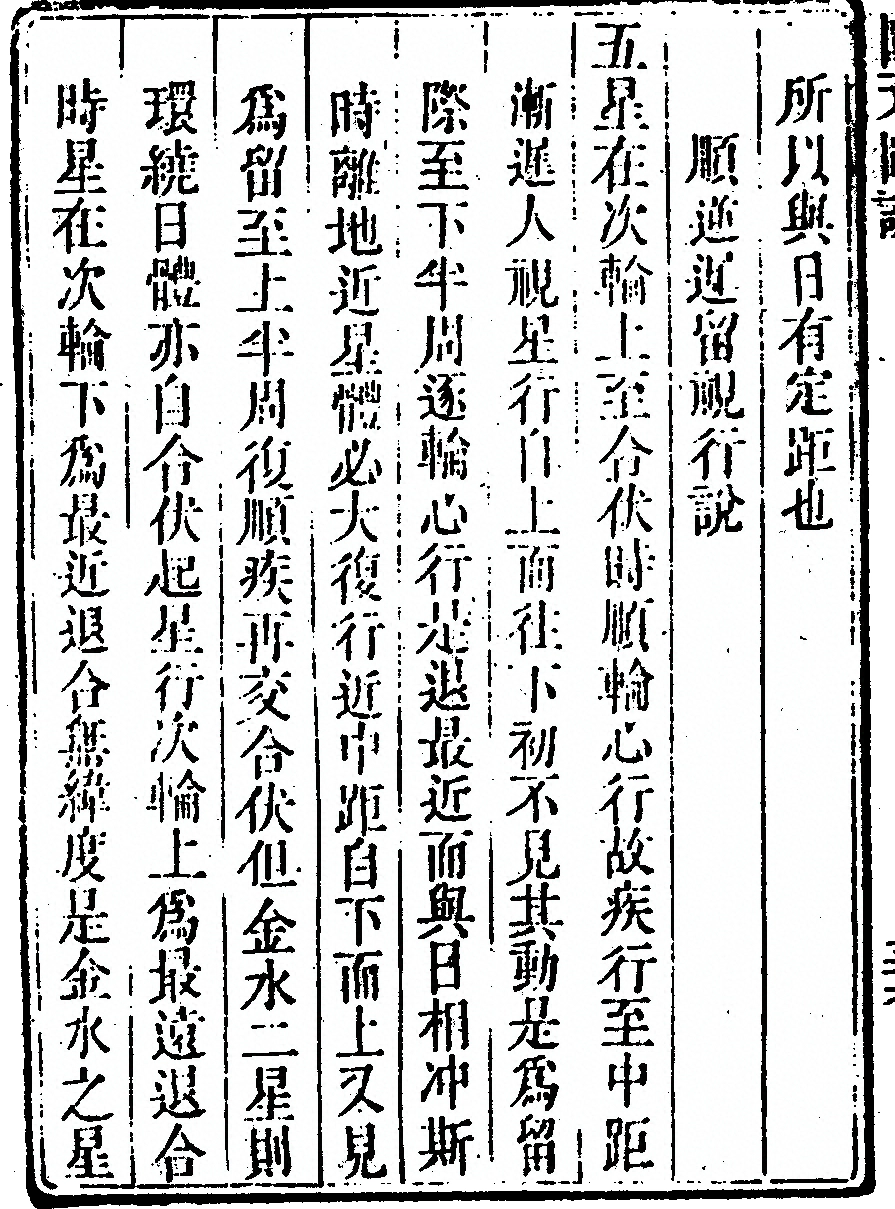 所以與日有定距也
順逆遲留視行說
五星在次輪上至合伏時順輪心行故疾行至中距
漸遲人視星行自上而往下初不見其動是為留
際至下半周逐輪心行是退最近而與日相冲斯
時離地近星體必大復行近中距自下而上又見
為留至上半周復順疾再交合伏但金水二星則
環繞日體亦自合伏起星行次輪上為最遠退合
時星在次輪下為最近退合無緯度是金水之星